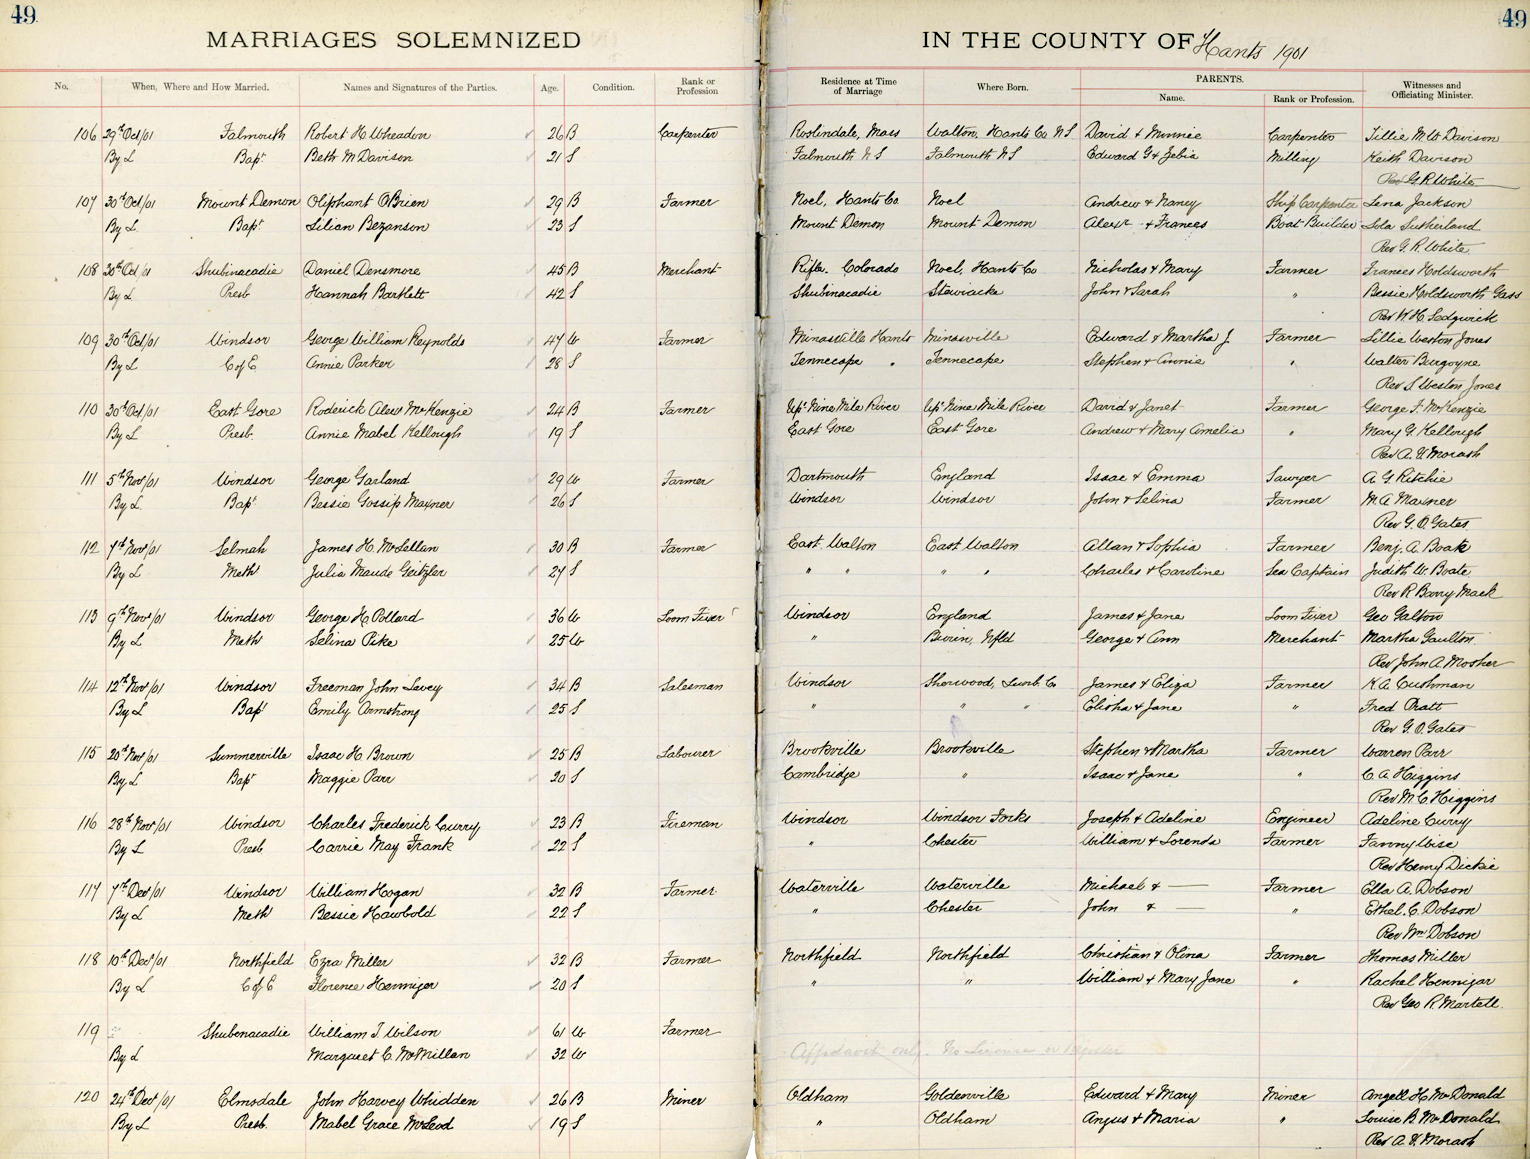 49
49
MARRIAGES SOLEMNIZED
IN THE COUNTY OF Hants 1901
No. When, Where and How Married. Names and Signatures of the Parties. Age. Condition. Rank or Profession Residence at Time of Marriage Where Born. PARENTS. Name. Rank or Profession. Witnesses and Officiating Minister.
106 29th Oct/01 Falmouth Robert H. Wheadon 26 B Carpenter Roslindale, Mass Walton, Hants Co N S David & Minnie Carpenter Tillie M. W Davison
By L Bapt Beth M Davison 21 S Falmouth N S Falmouth N S Edward G & Zebia Milling Keith Davison
Rev G. R. White
107 30th Oct/01 Mount Demon Oliphant O'Brien 29 B Farmer Noel, Hants Co Noel Andrew & Nancy Ship Carpenter Lena Jackson
By L Bapt Lilian Bezanson 23 S Mount Demon Mount Demon Alexr & Frances Boat Builder Lola Sutherland
Rev G. R. White
108 30th Oct/01 Shubinacadie Daniel Densmore 45 B Merchant Rifle, Colorado Noel, Hants Co Nicholas & Mary Farmer Frances Holdsworth
By L Presb Hannah Bartlett 42 S Shubinacadie Stewiacke John & Sarah " Bessie Holdsworth Gass
Rev W. H. Sedgwick
109 30th Oct/01 Windsor George William Reynolds 47 W Farmer Minasville Hants Minasville Edward & Martha J. Farmer Lillie Weston Jones
By L C of E Annie Parker 28 S Tennecape " Tennecape Stephen & Annie " Walter Burgoyne
Rev S Weston Jones
110 30th Oct/01 East Gore Roderick Alex McKenzie 24 B Farmer Upr Nine Mile River Upr Nine Mile River David & Janet Farmer George F. McKenzie
By L Presb. Annie Mabel Kellough 19 S East Gore East Gore Andrew & Mary Amelia " Mary G. Kellough
Rev A. V. Morash
111 5th Nov/01 Windsor George Garland 29 W Farmer Dartmouth England Isaac & Emma Sawyer A G Ritchie
By L. Bapt Bessie Gossip Maxner 26 S Windsor Windsor John & Selina Farmer M. A Maxner
Rev G. O. Gates
112 7th Nov/01 Selmah James H. McLellan 30 B Farmer East Walton East Walton Allan & Sophia Farmer Benj. A. Boak
By L Meth Julia Maude Geitzler 27 S " " " " Charles & Caroline Sea Captain Judith W. Boate
Rev R Barry Mack
113 9th Nov/01 Windsor George H. Pollard 36 W Loom Fixer Windsor England James & Jane Loom Fixer Geo Galton
By L Meth Selina Pike 25 W " Burin, Nfld George & Ann Merchant Martha Gaulton
Rev John A Mosher
114 12th Nov/01 Windsor Freeman John Lavey 34 B Salesman Windsor Sherwood, Lunb. Co James & Eliza Farmer K. A. Cushman
By L Bapt Emily Armstrong 25 S " " " Elisha & Jane " Fred Pratt
Rev G. O. Gates
115 20th Nov/01 Summerville Isaac H. Brown 25 B Labourer Brookville Brookville Stephen & Martha Farmer Warren Parr
By L Bapt Maggie Parr 20 S Cambridge " Isaac & Jane " C. A Higgins
Rev M. C. Higgins
116 28th Nov/01 Windsor Charles Frederick Curry 23 B Fireman Windsor Windsor Forks Joseph & Adeline Engineer Adeline Curry
By L Presb Carrie May Frank 22 S " Chester William & Lorenda Farmer Fanny Wise
Rev Henry Dickie
117 7th Dec/01 Windsor William Hogan 32 B Farmer Waterville Waterville Michael & — Farmer Ella A. Dobson
By L Meth Bessie Hawbold 22 S " Chester John & — " Ethel. C. Dobson
Rev Wm Dobson
118 10th Dec/01 Northfield Ezra Miller 32 B Farmer Northfield Northfield Christian & Olina Farmer Thomas Miller
By L C of E Florence Hennigar 20 S " " William & Mary Jane " Rachel Hennigar
Rev Geo R. Martell
119 Shubenacadie William T. Wilson 61 W Farmer
By L Margaret C. McMillan 32 W Affidavit only. No License or register
120 24th Dec/01 Elmsdale John Harvey Whidden 26 B Miner Oldham Goldenville Edward & Mary Miner Angell H. McDonald
By L Presb. Mabel Grace McLeod 19 S " Oldham Angus & Maria " Louise B. McDonald
Rev A. V. Morash